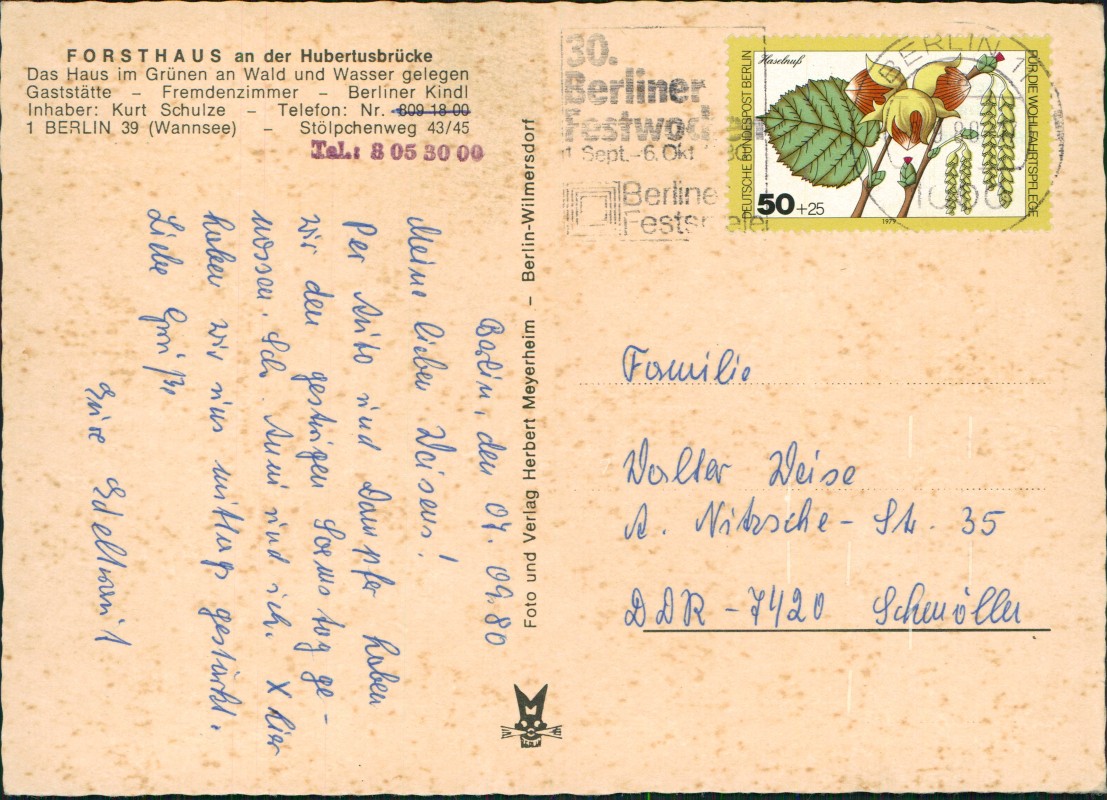 FORSTHAUS an der Hubertusbrücke
Das Haus im Grünen an Wald und Wasser gelegen
Gaststätte – Fremdenzimmer – Berliner Kindl
Inhaber: Kurt Schulze – Telefon: Nr. 809 18 00
1 BERLIN 39 (Wannsee) – Stölpchenweg 43/45
Tel.: 8 05 30 00
Berlin, den 07. 09. 80
Meine lieben Weisens!
Per Auto und Dampfer haben
wir den gestrigen Samstag ge-
nossen. Ich Anni und ich. X Hier
haben wir uns mittags gestärkt.
Liebe Grüße
Eure Edeltraut
Foto und Verlag Herbert Meyerheim – Berlin-Wilmersdorf
30.
Berliner
Festwochen
1. Sept.-6. Okt. 80
Berliner
Festspiele
BERLIN 1
Haselnuß
DEUTSCHE BUNDESPOST BERLIN
FÜR DIE WOHLFAHRTSPFLEGE
50+25
1979
Familie
Walter Weise
A. Nitzsche-Str. 35
DDR-7420 Schmölln